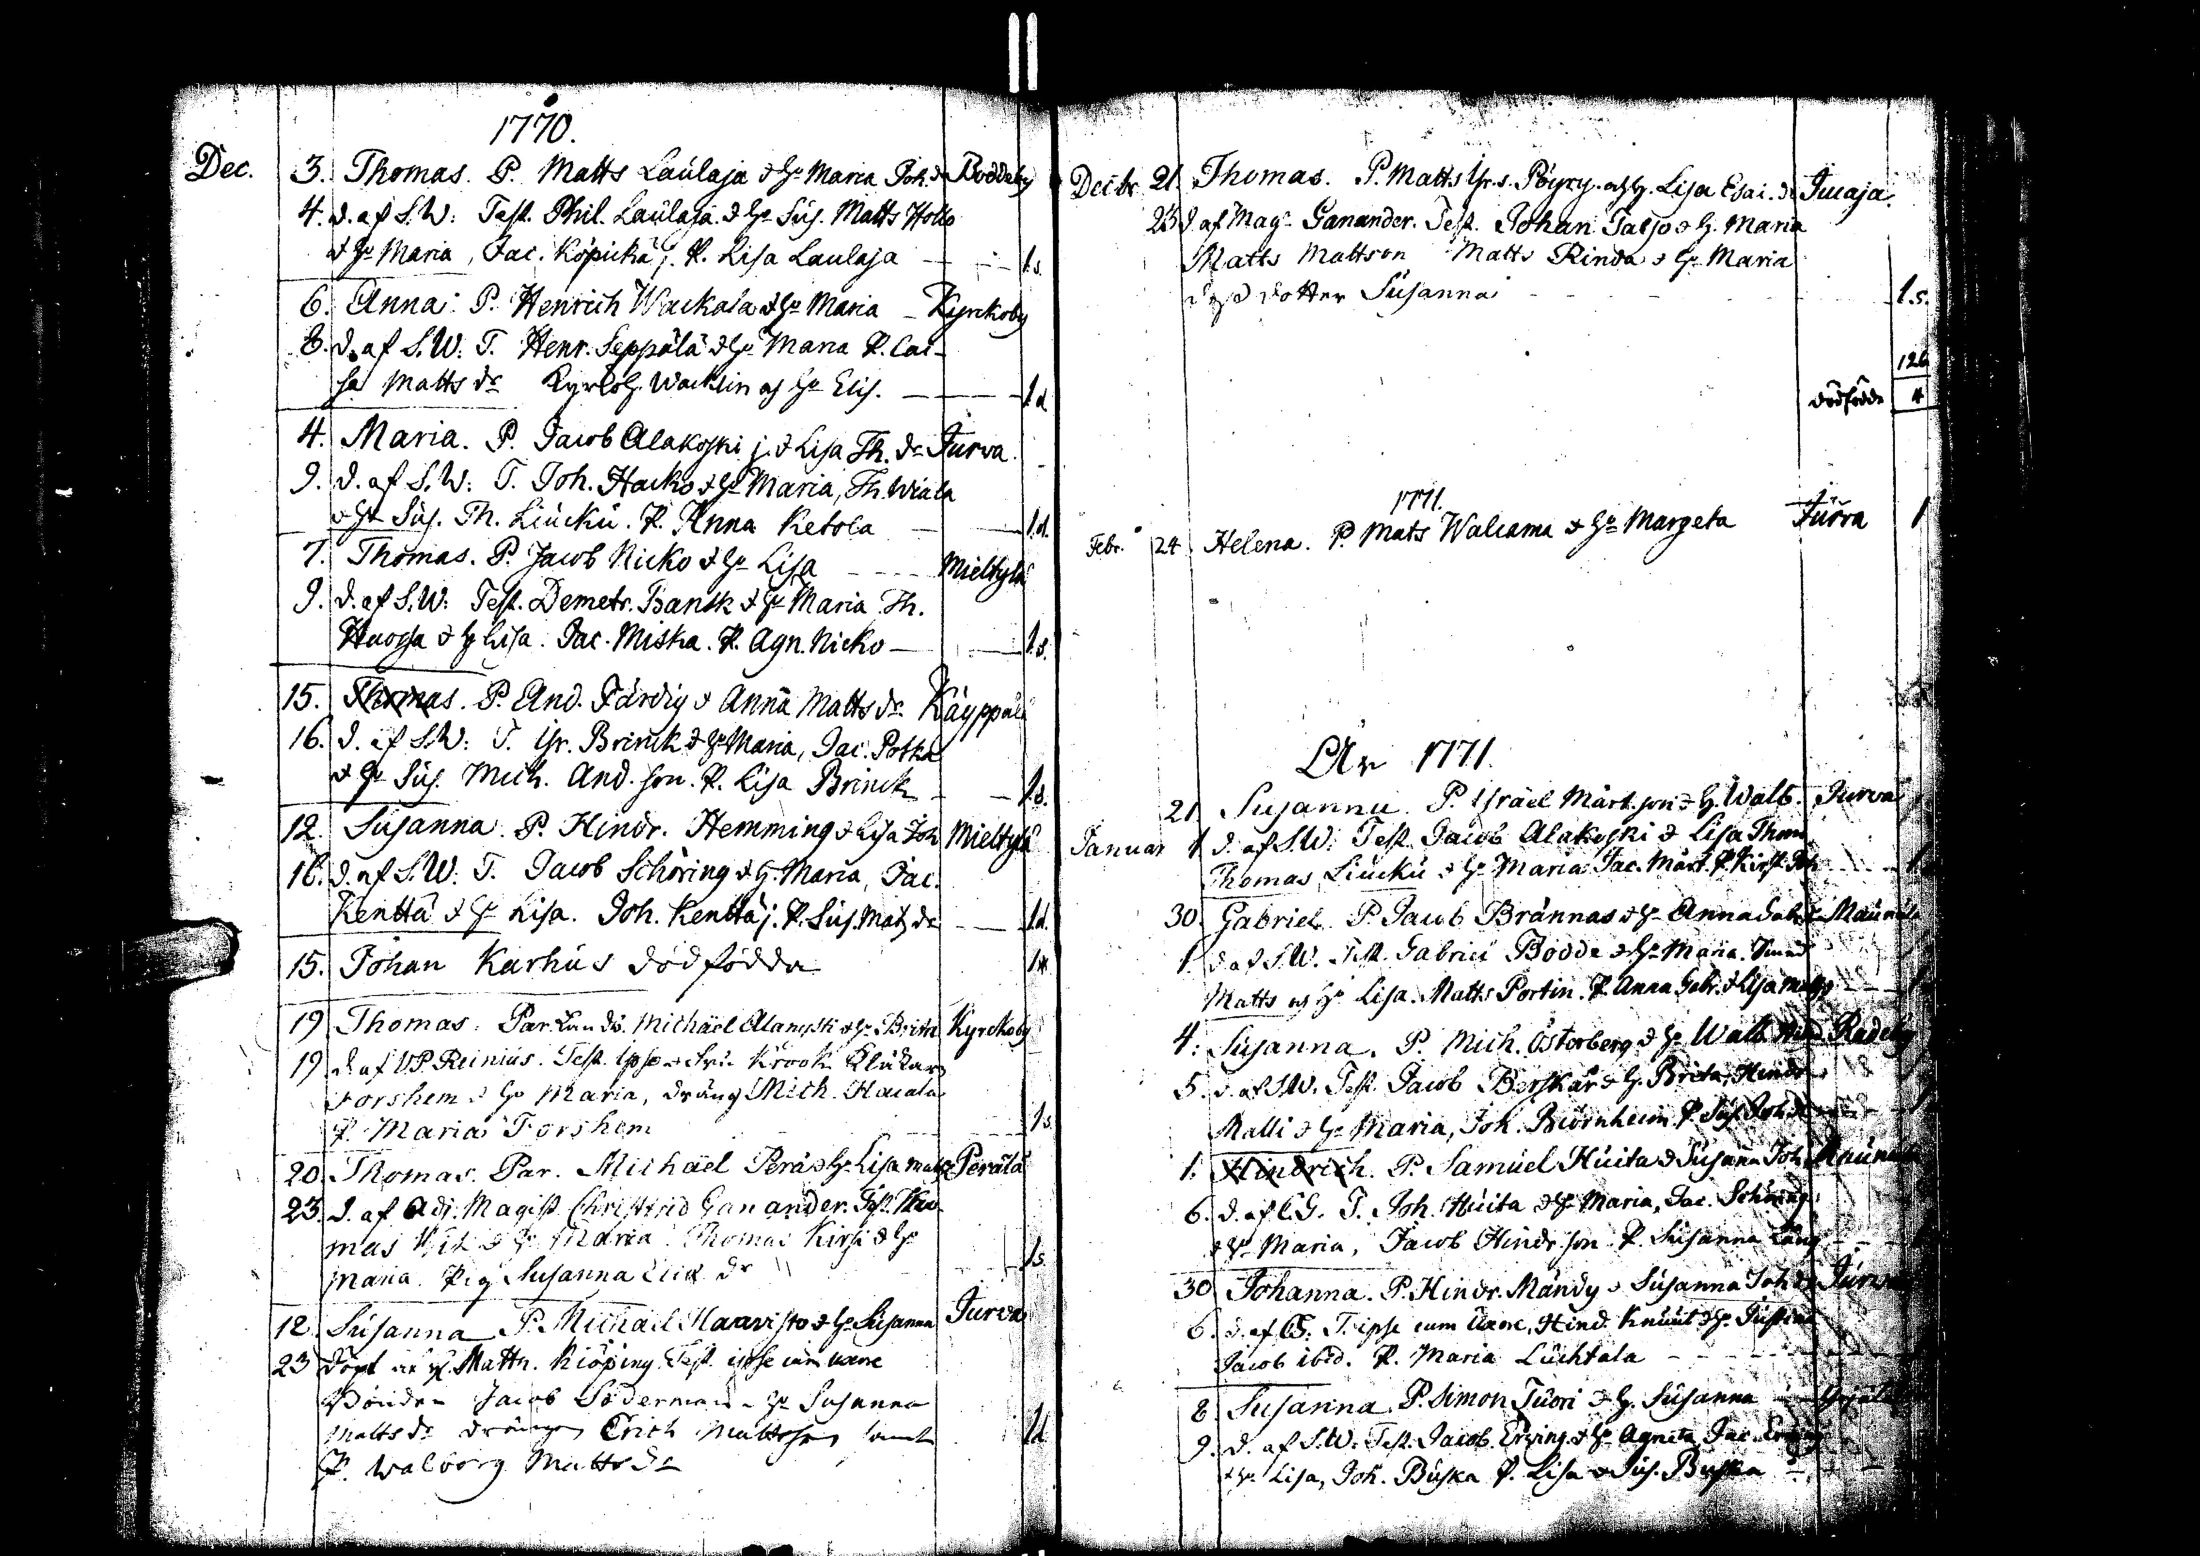 1770.
Dec. 3. Thomas. P. Matts Laulaja & H. Maria Joh. d. Boddeby
4. d. af S.W: Test. Phil. Laulaja & H. Sus. Matts Hollo
& H. Maria, Jac. Köpickä j. P. Lisa Laulaja 1.s.
6. Anna: P. Henrich Wackala & H. Maria Kyrckoby
8. d. af S.W: T. Henr. Seppälä & H. Maria P. Cai-
sa Matts dr Kyrkoh. Wacklin och H. Elis. 1.d
4. Maria. P. Jacob Alakoski j. & Lisa Th. dr Jurva
9. d. af S.W: T. Joh. Hacko & H. Maria, Th. Wiala
& H. Sus. Th. Liucku. P. Anna Ketola 1.d.
7. Thomas. P. Jacob Nicko & H. Lisa Mieltylä
9. d. af S.W: Test. Demetr. Bansk & H. Maria Th.
Huossa & H. Lisa. Jac. Miska. P. Agn. Nicko 1.s.
15. Thomas. P. And. Färdig & Anna Matts dr. Käyppälä
16. d. af S.W: T. Gr. Brinck & H. Maria, Jac. Potka
& H. Sus. Mich. And. son. P. Lisa Brinck 1.s.
12. Susanna. P. Hindr. Hemming & Lisa Joh Mieltylä
16. d. af S.W: T. Jacob Schöring & H. Maria, Jac.
Kenttä & H. Lisa. Joh. Kenttä j. P. Sus. Mats dr 1.d.
15. Johan Karhus dödfödde
19 Thomas. Par. Michäel Alangsti & H. Brita Kyrckoby
19 d. af VP Reinius. Test. Ipse Krook Kluckar
Forshem & H. Maria, dräng Mich. Hacala
P. Maria Forshem 1s.
20. Thomas. Par. Michäel Perä & H. Lisa Perälä
23. d. af Adj. Magist. Christfrid Ganander. Test. Tho-
mas & H. Maria Thomas Kirsi & H.
Maria. Pig Susanna dr 1s.
12. Susanna P. Michael Haavisto & H. Susanna Jurva
23 döpt af Mattn. Kiöping Test. ipse cum uxore
Bonden Jacob Söderman H. Susanna
Matts dr drängen Erich Mattsson samt 1d
P. Walborg Matts dr
Decbr. 21. Thomas. P. Matts Gr. s. Pöyry och H. Lisa Esai. dr Jucaja.
23 d af Mag. Ganander. Test. Johan Taljo & H. Maria
Matts Mattson Matts Rinda & H. Maria
dess dotter Susanna 1.s.
126
dödfödde 4
1771.
Febr. 24. Helena. P. Mats Walcama & H. Margeta Jurva 1
År 1771.
21 Susanna. P. Israel Märt. son & H. Walb. Jurva
Januar 1 d. af S.W: Test. Jacob Alakoski & Lisa Thom
Thomas Liucku & H. Maria Jac. Märt. P. Kirst. Joh 1
30. Gabriel. P. Jacob Brännas & H. Anna
1. d. af S.W. Test. Gabriel Bodde & H. Maria.
Matts och H. Lisa. Matts Portin. P. Anna Gabr. & Lisa
4. Susanna. P. Mich. Österberg & H. Walb. Radeby
5. d. af S.W. Test. Jacob Berskär & H. Brita, Hindr
Malli & H. Maria, Joh. Biörnheim. P. Sus. Joh
1. Hindrich. P. Samuel Huita & Susanna Joh
6. d. af C.G. T. Joh. Huita & H. Maria, Jac. Schöring
& H. Maria, Jacob Hindr. son. P. Susanna Lång
30 Johanna. P. Hindr. Mändy & Susanna Joh. dr Jurva
6. d. af T. ipse cum uxore, Hind. Knuut & H. Justina
Jacob ibid. P. Maria Luchtala
8 Susanna. P. Simon Tuori & H. Susanna
9. d. af S.W: Test. Jacob Erving & H. Agneta Jac. Erving
& H. Lisa, Joh. Buska P. Lisa & Sus. Buska